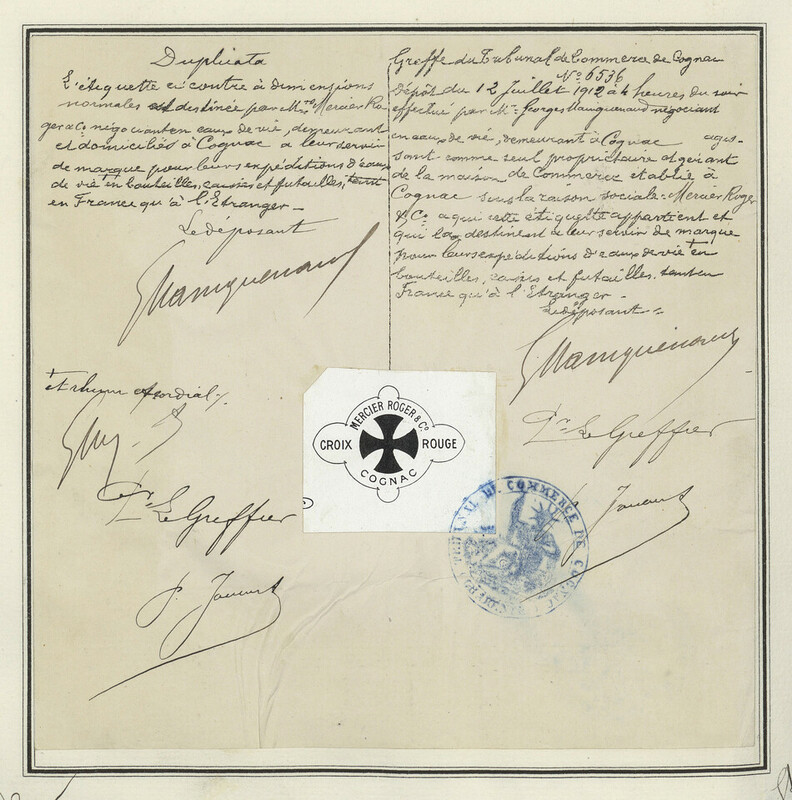 Duplicata
L'étiquette ci contre à dimensions
normales est destinée par Mrs Mercier Ro-
ger & Co négociants en eaux de vie, demeurant
et domiciliés à Cognac a leur servir
de marque pour leurs expéditions d'eaux
de vie en bouteilles, caisses et futailles, tant
en France qu'à l'Etranger -
Le déposant
GMauquenaud
+ et rhum
Pr Le Greffier
Greffe du Tribunal de Commerce de Cognac
No 6536
Dépôt du 12 Juillet 1912 à 4 heures du soir
effectué par Mr Georges Mauquenaud négociant
en eaux de vie, demeurant à Cognac agis-
sant comme seul propriétaire et gérant
de la maison de Commerce établie à
Cognac sous la raison sociale: Mercier Roger
& Co a qui cette étiquette appartient et
qui la destinent a leur servir de marque
pour leurs expéditions d'eaux de vie + en
bouteilles, caisses et futailles. tant en
France qu'à l'Etranger -
Le déposant
GMauquenaud
Pr Le Greffier
MERCIER ROGER & Co
CROIX ROUGE
COGNAC
TRIBUNAL DE COMMERCE DE COGNAC